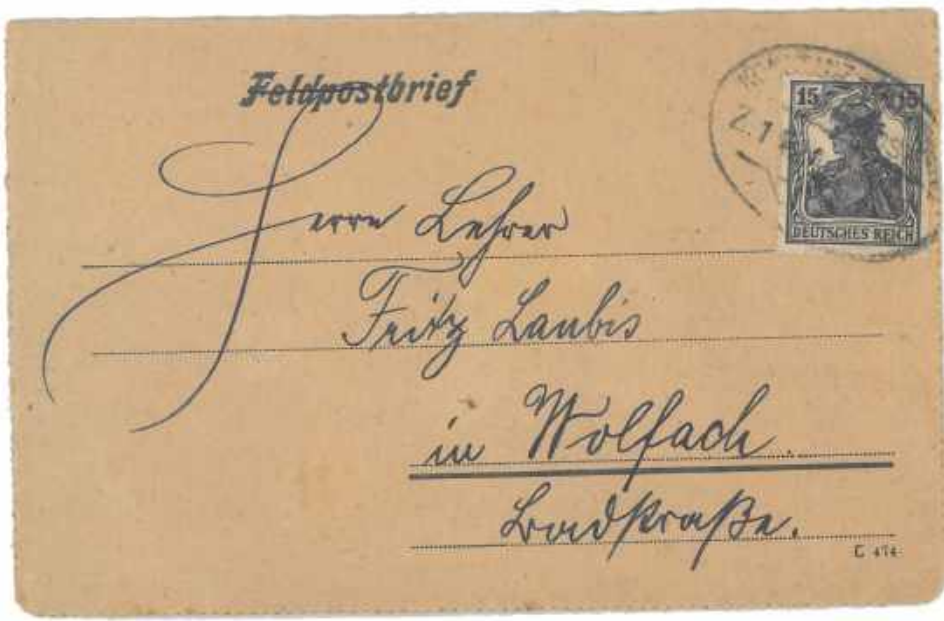 Feldpostbrief
15 15
DEUTSCHES REICH
Herrn Lehrer
Fritz Laubis
in Wolfach.
Badstraße.
C 474